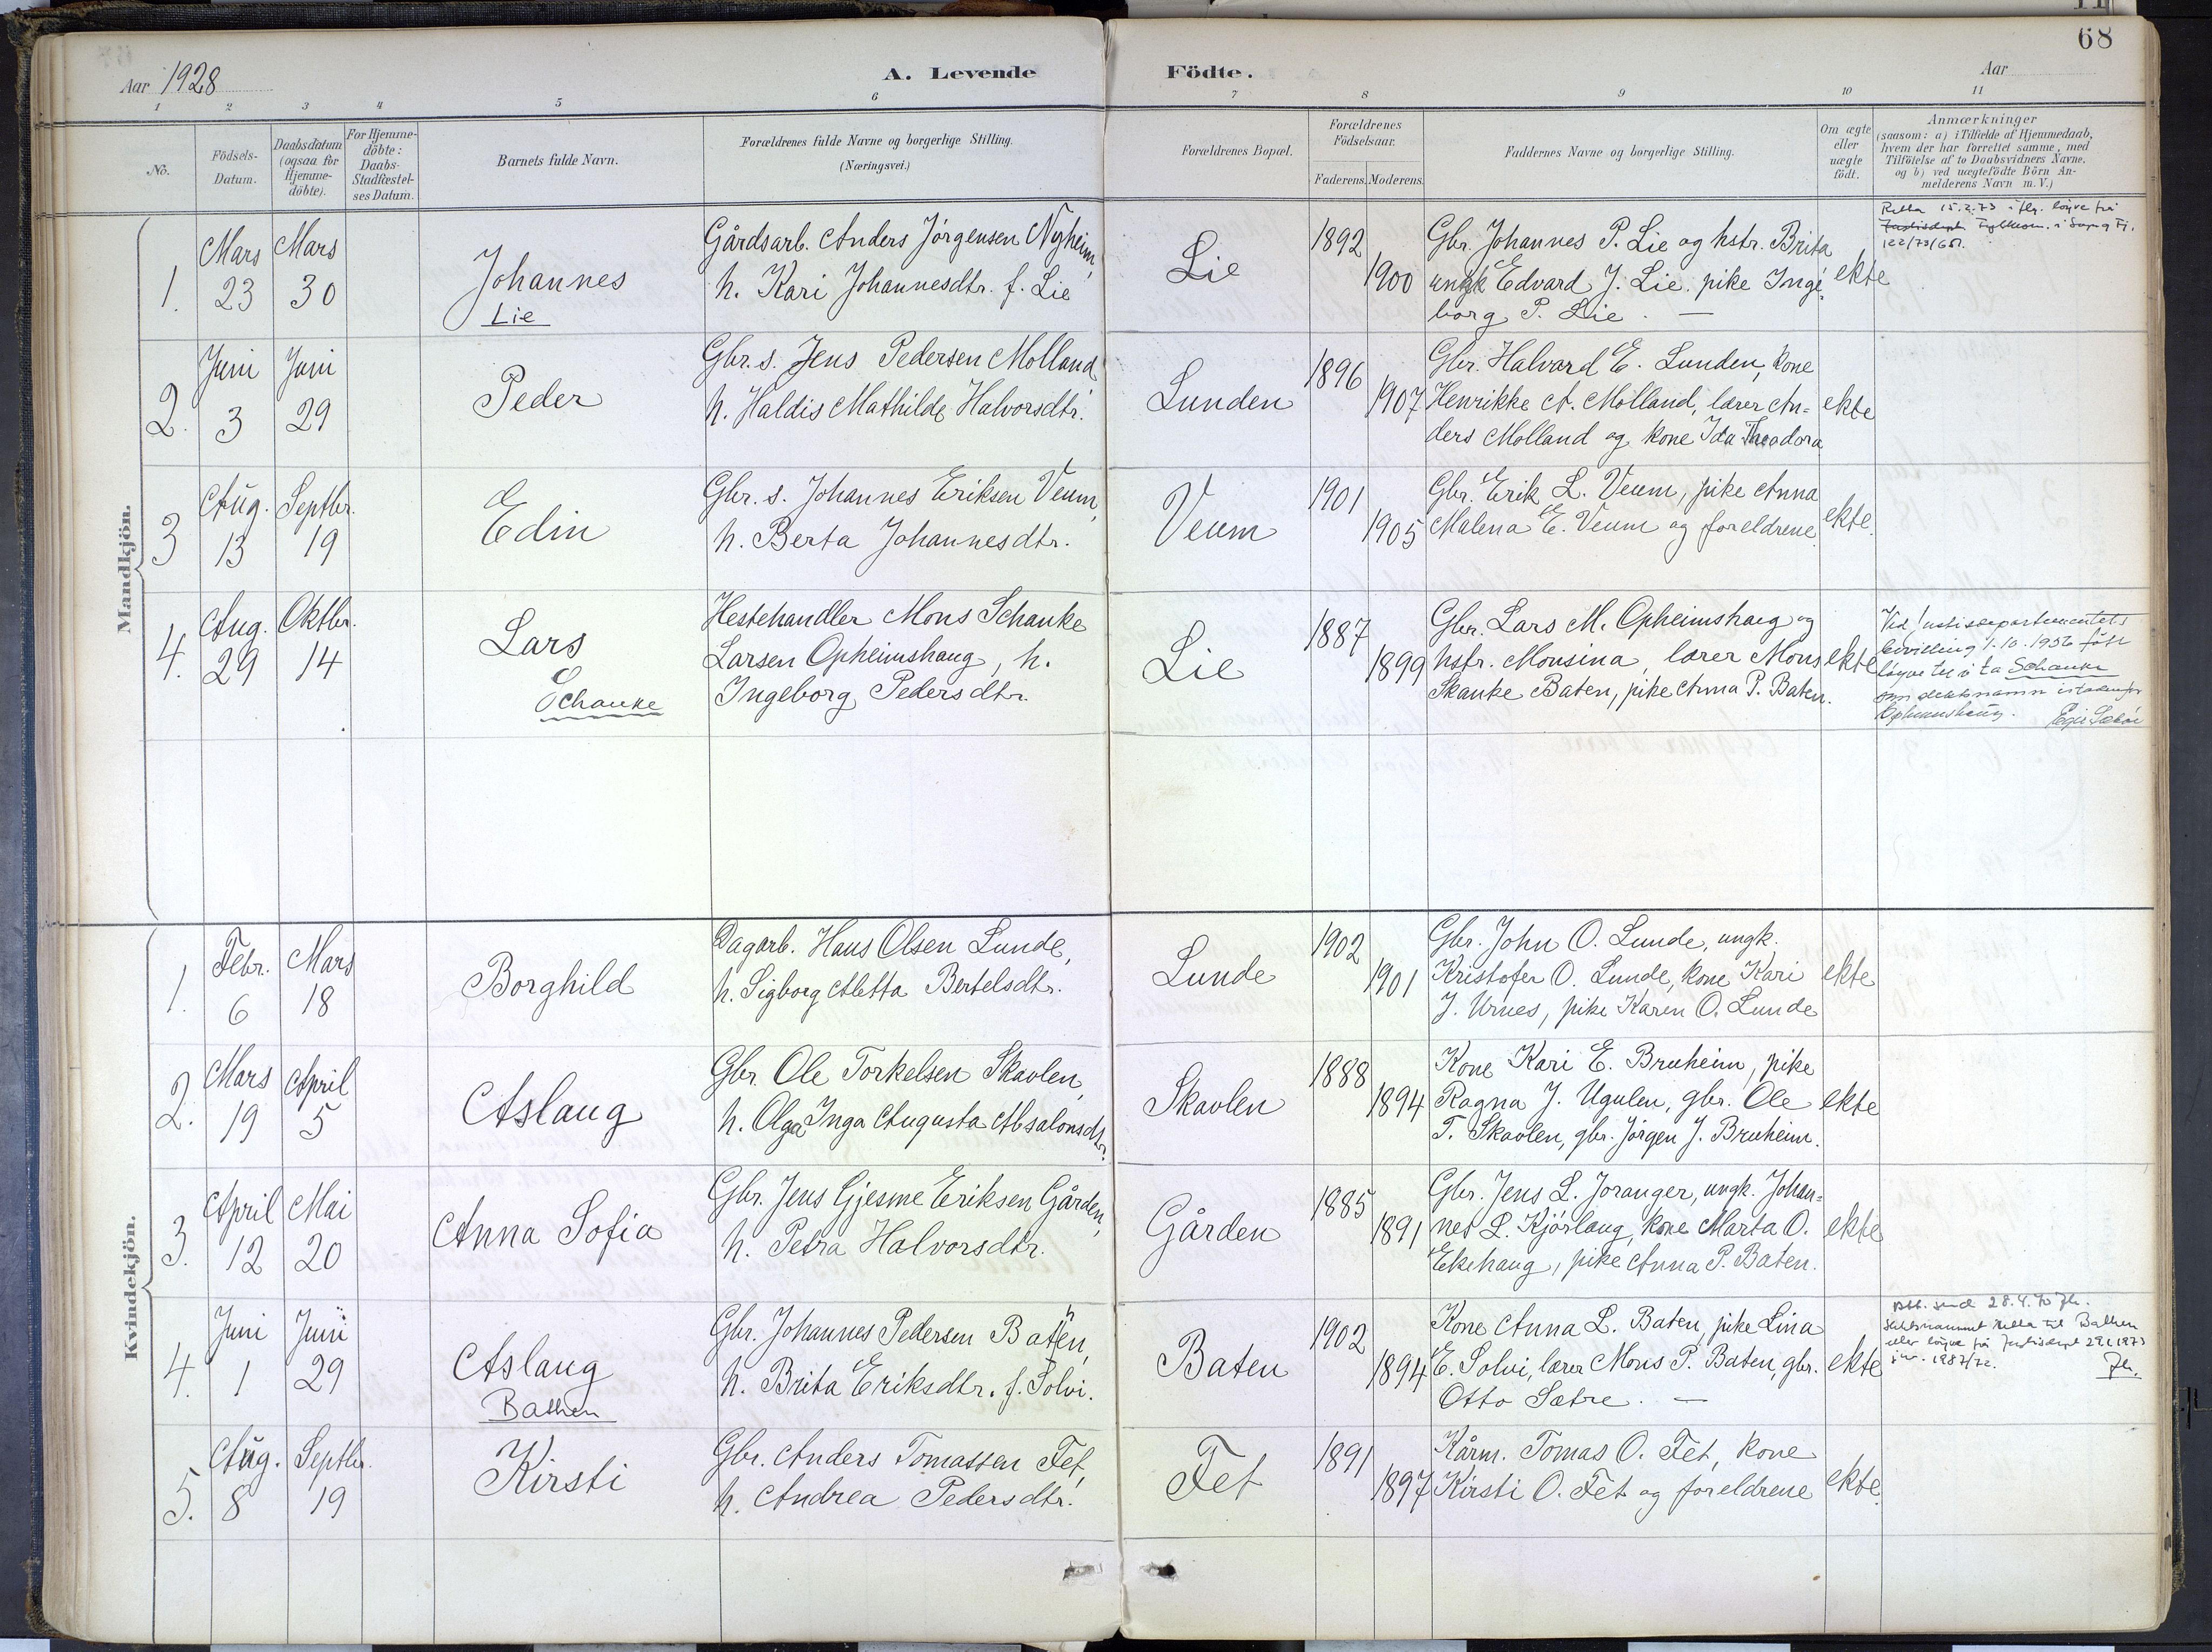 68
Aar 1928
A. Levende Födte.
Aar
1 2 3 4 5 6 7 8 9 10 11
No.
Födsels-
Datum.
Daabsdatum
(ogsaa for
Hjemme-
döbte).
For Hjemme-
döbte:
Daabs-
Stadfæstel-
ses Datum.
Barnets fulde Navn.
Forældrenes fulde Navne og borgerlige Stilling.
(Næringsvei.)
Forældrenes Bopæl.
Forældrenes
Födselsaar.
Faderens. Moderens.
Faddernes Navne og borgerlige Stilling.
Om ægte
eller
uægte
födt.
Anmærkninger
(saasom: a) i Tilfælde af Hjemmedaab,
hvem der har forrettet samme, med
Tilföielse af to Daabsvidners Navne,
og b) ved uægtefödte Börn An-
melderens Navn m. V.)
Mandkjön.
1.
Mars
23
Mars
30
Johannes
Lie
Gårdsarb. Anders Jörgensen Nyheim,
h. Kari Johannesdtr. f. Lie
Lie
1892
1900
Gbr. Johannes P. Lie og hstr. Brita
ungk Edvard J. Lie, pike Inge-
borg P. Lie. —
ekte
Retta 15.2.73 i flg. løyve frå
Justisdept. Fylkesm. i Sogn og Fj.
122/73/651.
2.
Juni
3
Juni
29
Peder
Gbr. s. Jens Pedersen Molland
h. Haldis Mathilde Halvorsdtr.
Lunden
1896
1907
Gbr. Halvard E. Lunden, kone
Henrikke A. Molland, lærer An-
ders Molland og kone Ida Theodora
ekte
3
Aug.
13
Septbr.
19
Edin
Gbr. s. Johannes Eriksen Veum,
h. Berta Johannesdtr.
Veum
1901
1905
Gbr. Erik L. Veum, pike Anna
Malena E. Veum og foreldrene
ekte.
4.
Aug.
29
Oktbr.
14
Lars
Schanke
Hestehandler Mons Schanke
Larsen Opheimshaug, h.
Ingeborg Pedersdtr.
Lie
1887
1899
Gbr. Lars M. Opheimshaug og
hstr. Monsina, lærer Mons
Skanke Baten, pike Anna P. Baten.
ekte
Ved Justisdepartementets
bevilling 1.10.1956 fått
løyve til å ta Schanke
som slektsnamn istadenfor
Opheimshaug.
Kvindekjön.
1.
Febr.
6
Mars
18
Borghild
Dagarb. Hans Olsen Lunde,
h. Sigborg Aletta Bertelsdtr.
Lunde
1902
1901
Gbr. John O. Lunde, ungk.
Kristofer O. Lunde, kone Kari
J. Urnes, pike Karen O. Lunde
ekte
2.
Mars
19
April
5
Aslaug
Gbr. Ole Torkelsen Skavlen,
h. Olga Inga Augusta Absalonsdtr.
Skavlen
1888
1894
Kone Kari E. Bruheim, pike
Ragna J. Ugulen, gbr. Ole
T. Skavlen, gbr. Jörgen J. Bruheim.
ekte
3.
April
12
Mai
20
Anna Sofia
Gbr. Jens Gjesme Eriksen Gården,
h. Petra Halvorsdtr.
Gården
1885
1891
Gbr. Jens L. Joranger, ungk. Johan-
nes L. Kjörlaug, kone Marta O.
Ekehaug, pike Anna P. Baten.
ekte
4.
Juni
1
Juni
29
Aslaug
Bathen
Gbr. Johannes Pedersen Bathen,
h. Brita Eriksdtr. f. Solvi.
Baten
1902
1894
Kone Anna L. Baten, pike Lina
E. Solvi, lærer Mons P. Baten, gbr.
Otto Sætre. —
ekte
Att. send 28.4.70
Slektsnamnet retta til Bathen
etter løyve frå Justisdept 29.1.1973
jnr. 1987/72.
5.
Aug.
8
Septbr.
19
Kirsti
Gbr. Anders Tomassen Fet,
h. Andrea Pedersdtr.
Fet
1891
1897
Kårm. Tomas O. Fet, kone
Kirsti O. Fet og foreldrene
ekte.